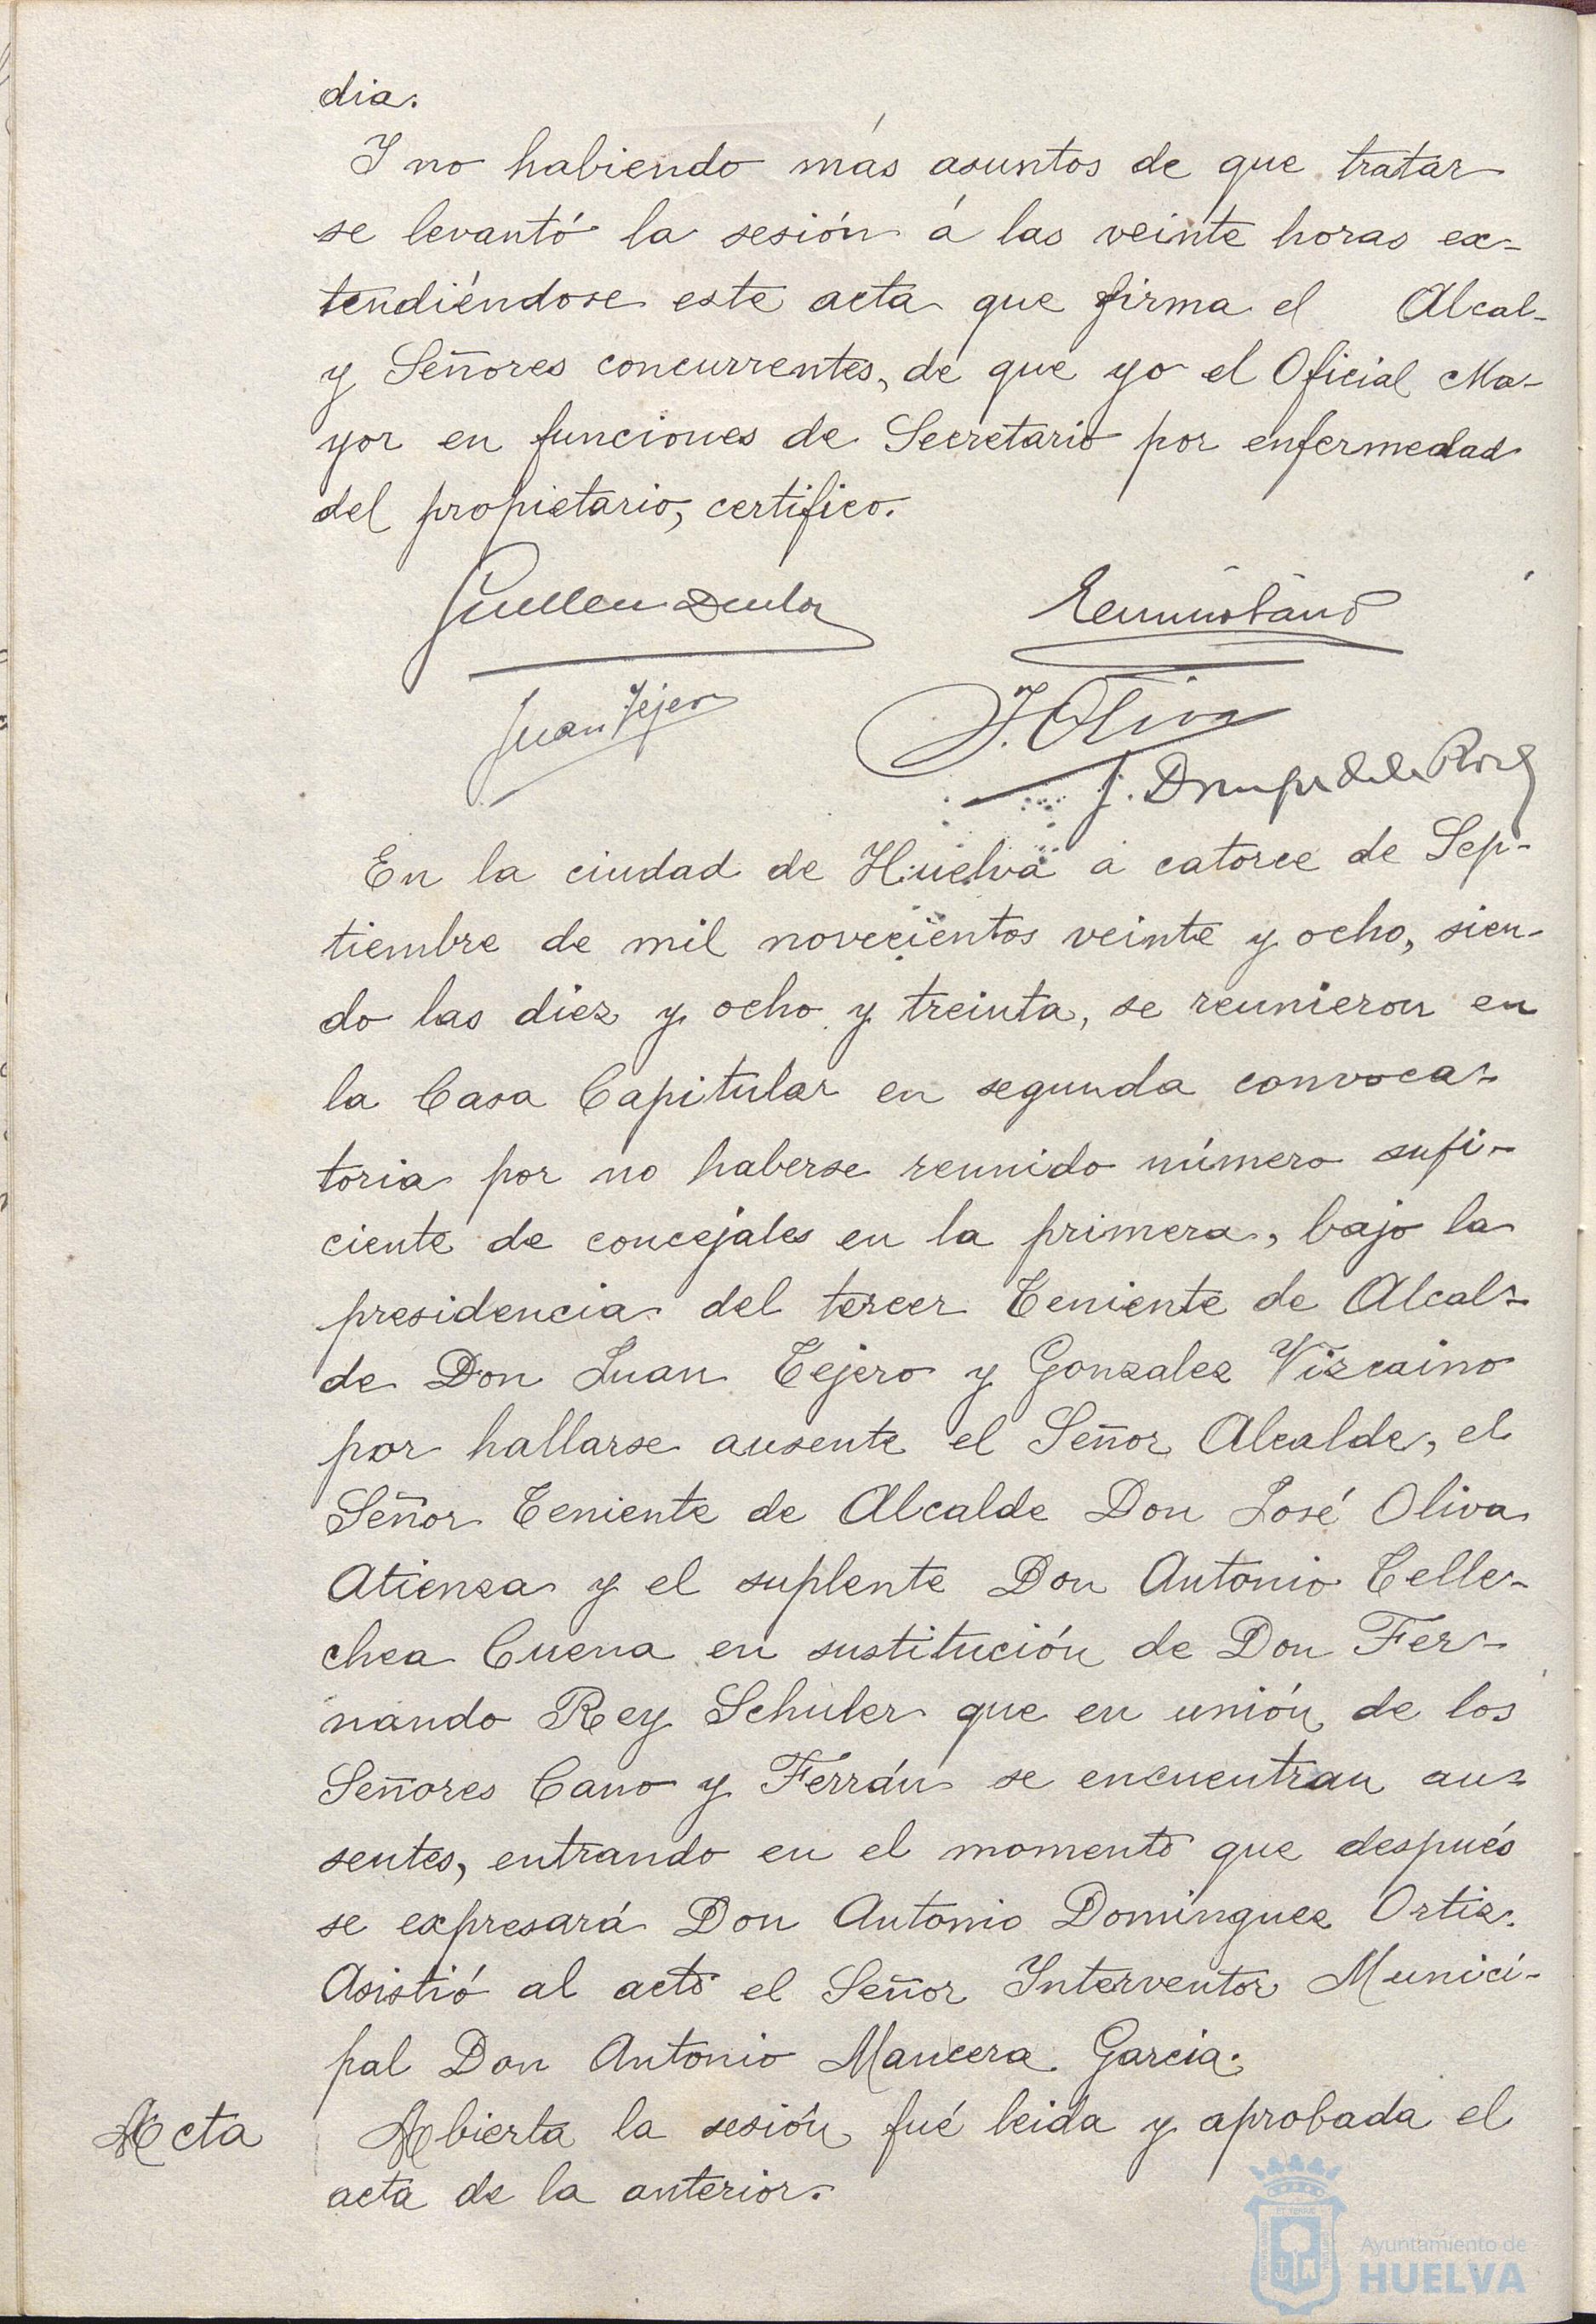 dia.
Y no habiendo más asuntos de que tratar
se levantó la sesión á las veinte horas ex-
tendiéndose este acta que firma el Alcal-
y Señores concurrentes, de que yo el Oficial Ma-
yor en funciones de Secretario por enfermedad
del propietario, certifico.
Juan Tejero
J. Oliva
En la ciudad de Huelva a catorce de Sep-
tiembre de mil novecientos veinte y ocho, sien-
do las diez y ocho y treinta, se reunieron en
la Casa Capitular en segunda convoca-
toria por no haberse reunido número sufi-
ciente de concejales en la primera, bajo la
presidencia del tercer Teniente de Alcal-
de Don Juan Tejero y Gonzalez Vizcaino
por hallarse ausente el Señor Alcalde, el
Señor Teniente de Alcalde Don José Oliva
Atienza y el suplente Don Antonio Telle-
chea Cuena en sustitución de Don Fer-
nando Rey Schuler que en unión de los
Señores Cano y Ferrán se encuentran au-
sentes, entrando en el momento que después
se expresará Don Antonio Dominguez Ortiz.
Asistió al acto el Señor Interventor Munici-
pal Don Antonio Mancera Garcia.
Acta
Abierta la sesión fué leida y aprobada el
acta de la anterior.
Ayuntamiento de
HUELVA